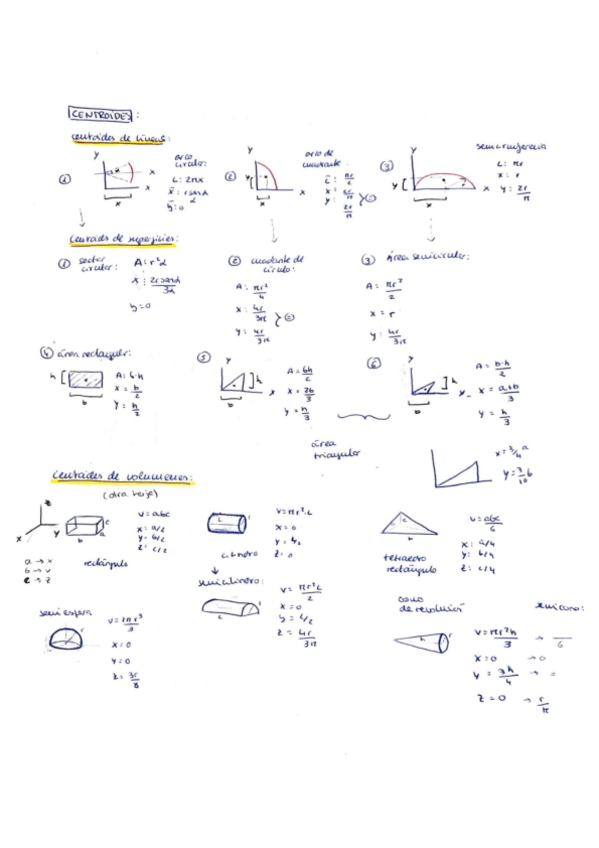 CENTROIDES:
centroides de líneas:
① arco circular:
L: 2πα
x̄: r senα / α
ȳ: 0
② arco de cuadrante
L: πr/2
x: 2r/π
y: 2r/π
③ semicircunferencia
L: πr
x: r
y: 2r/π
Centroides de superficies:
① sector circular:
A: r²α
x: 2r senα / 3α
y = 0
② cuadrante de círculo:
A: πr²/4
x: 4r/3π
y: 4r/3π
③ área semicircular:
A: πr²/2
x = r
y: 4r/3π
④ área rectangular:
A: b·h
x = b/2
y: h/2
⑤
A = bh/2
x = 2b/3
y = h/3
⑥
A = b·h/2
x = a+b/3
y = h/3
área triangular
x = 3/4 a
y = 3/10 b
Centroides de volúmenes:
(otra hoja)
a → x
b → y
c → z
rectángulo
V = abc
x: a/2
y = b/2
z: c/2
cilindro
V = πr²·L
x = 0
y = L/2
z = 0
tetraedro rectángulo
V = abc/6
x: a/4
y: b/4
z: c/4
semiesfera
V = 2πr³/3
x = 0
y = 0
z = 3r/8
semicilindro:
V = πr²L/2
x = 0
y = L/2
z = 4r/3π
cono de revolución
V = πr²h/3
x = 0
y = 3h/4
z = 0
semicono:
→ /6
→ 0
→ =
→ r/π